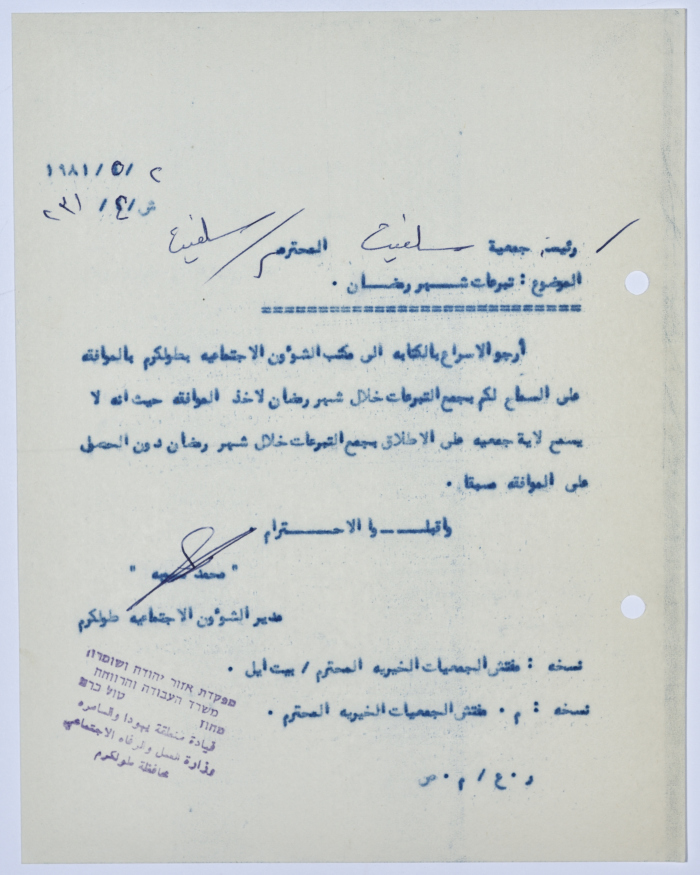 ٢ /٥ /١٩٨١
ش/٤/ ٢٣١
رئيسة جمعية سلفيت المحترمه / سلفيت
الموضوع : تبرعات شهر رمضان .
أرجو الاسراع بالكتابه الى مكتب الشؤون الاجتماعيه بطولكرم بالموافقه
على السماح لكم بجمع التبرعات خلال شهر رمضان لاخذ الموافقه حيث انه لا
يسمح لاية جمعيه على الاطلاق بجمع التبرعات خلال شهر رمضان دون الحصل
على الموافقه مسبقا .
واقبلــوا الاحــترام
" محمد "
مدير الشؤون الاجتماعيه طولكرم
نسخه : مفتش الجمعيات الخيريه المحترم / بيت ايل .
نسخه : م . مفتش الجمعيات الخيريه المحترم .
ر . ع / م . ص
מפקדת אזור יהודה ושומרון
משרד העבודה והרווחה
מחוז טול כרם
قيادة منطقة يهودا والسامره
وزارة العمل والرفاه الاجتماعي
محافظة طولكرم